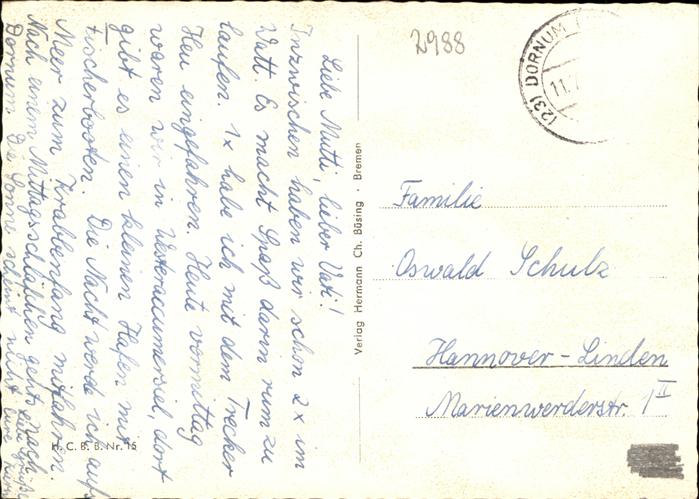 Liebe Mutti, lieber Vati!
Inzwischen haben wir schon 2x im
Watt. Es macht Spaß darin rum zu
laufen. 1x habe ich mit dem Trecker
Heu eingefahren. Heute vormittag
waren wir in Westeraccumersiel, dort
gibt es einen kleinen Hafen mit
Fischerbooten. Die Nacht werde ich aufs
Meer zum Krabbenfang mitfahren.
Nach einem Mittagsschläfchen geht nach
Dornum. Die Sonne scheint
H. C. B. B. Nr. 15
Verlag Hermann Ch. Büsing · Bremen
2988
(23) DORNUM
11.
Familie
Oswald Schulz
Hannover-Linden
Marienwerderstr. 1 II